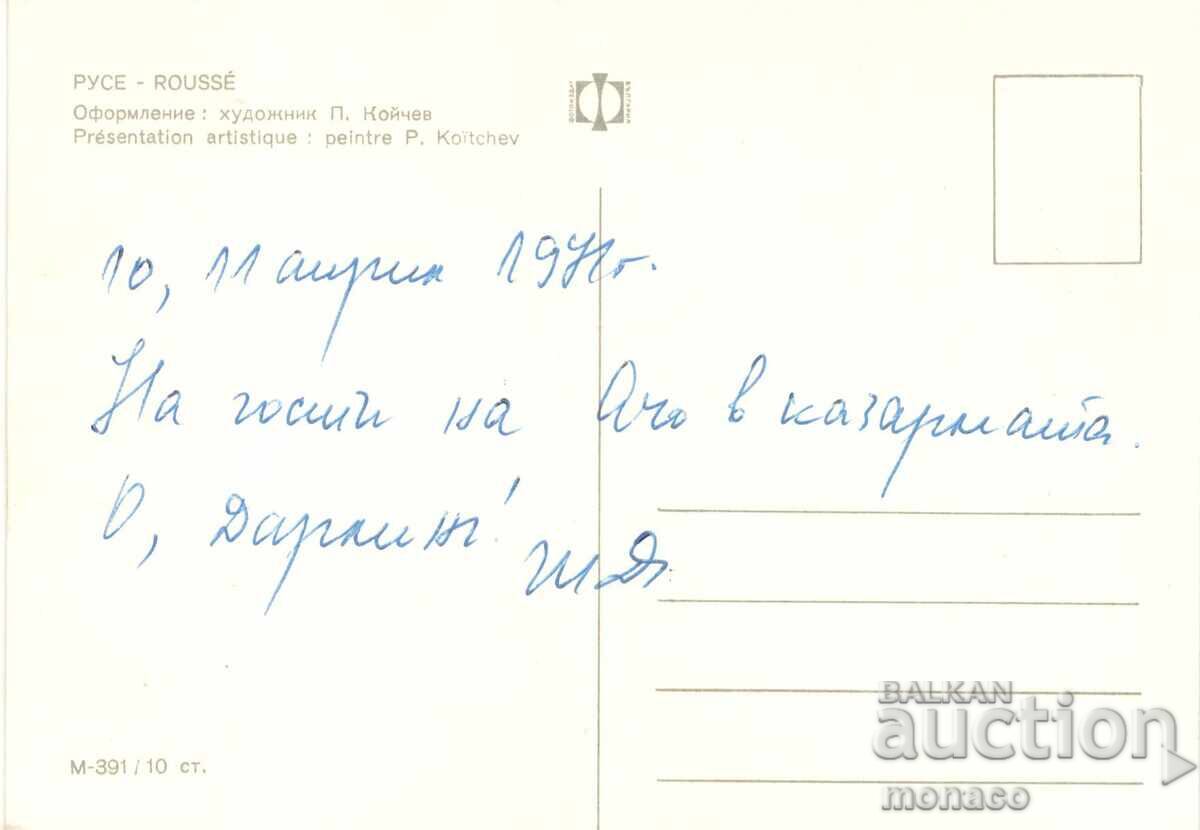 РУСЕ - ROUSSÉ
Оформление: художник П. Койчев
Présentation artistique : peintre P. Koïtchev
ФОТОИЗДАТ
БЪЛГАРИЯ
10, 11 април 1971г.
На гости на в казармата.
О, Дарлинг!
М-391/10 ст.
BALKAN
auction
monaco